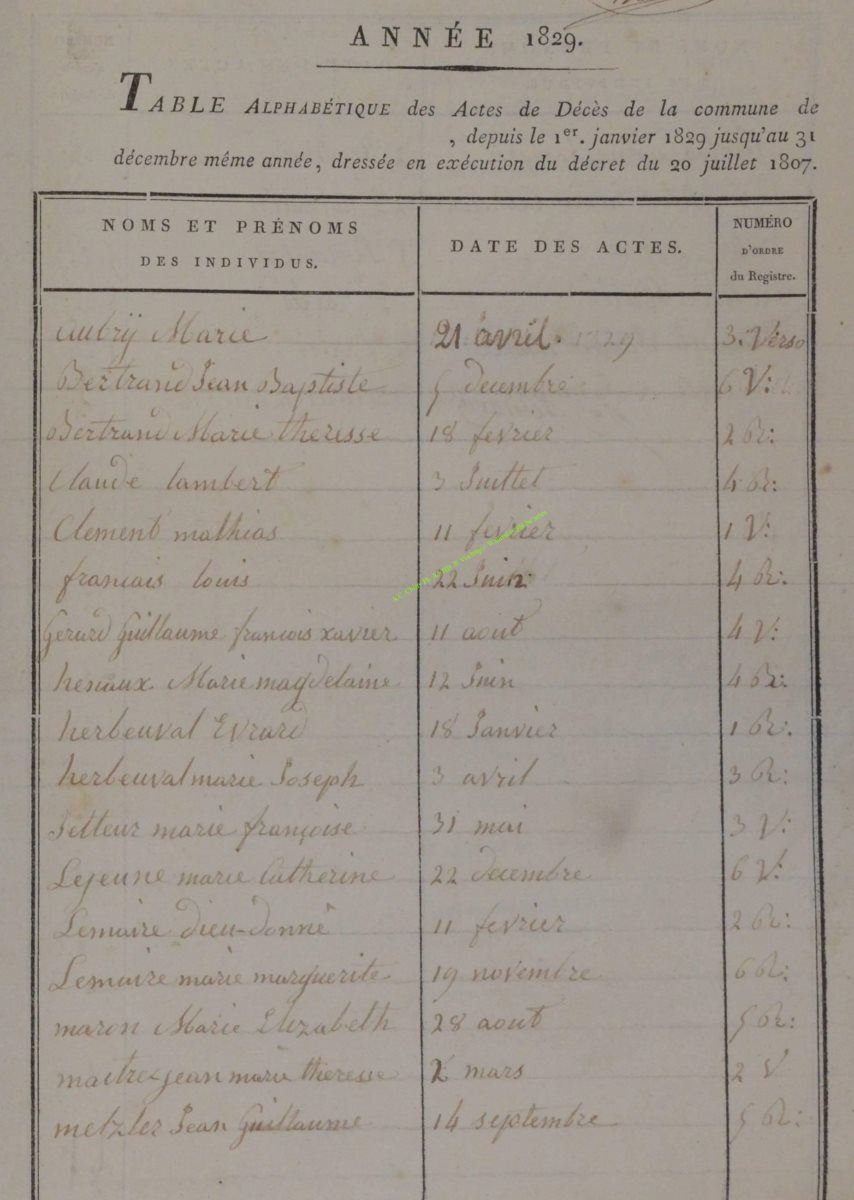 ANNÉE 1829.
TABLE ALPHABÉTIQUE des Actes de Décès de la commune de
, depuis le 1er. janvier 1829 jusqu'au 31
décembre même année, dressée en exécution du décret du 20 juillet 1807.
NOMS ET PRÉNOMS DES INDIVIDUS. DATE DES ACTES. NUMÉRO D'ORDRE du Registre.
Aubrÿ Marie 21 avril. 1829 3. Verso
Bertrand Jean Baptiste 5 decembre 6 V:
Bertrand Marie theresse 18 fevrier 2 R:
Claude lambert 3 Juillet 4 R:
Clement mathias 11 fevrier 1 V:
francais louis 22 Juin 4 R:
Gerard Guillaume francois xavier 11 aout 4 V:
henaux Marie magdelaine 12 Juin 4 R:
herbeuval Evrard 18 Janvier 1 R.
herbeuval marie Joseph 3 avril 3 R:
marie françoise 31 mai 3 V:
Lejeune marie Catherine 22 decembre 6 V:
Lemaire dieu-donné 11 fevrier 2 R:
Lemaire marie marguerite 19 novembre 6 R:
maron Marie Elizabeth 28 aout 5 R:
maitre-jean marie theresse 2 mars 2 V
metzler Jean Guillaume 14 septembre 5 R: